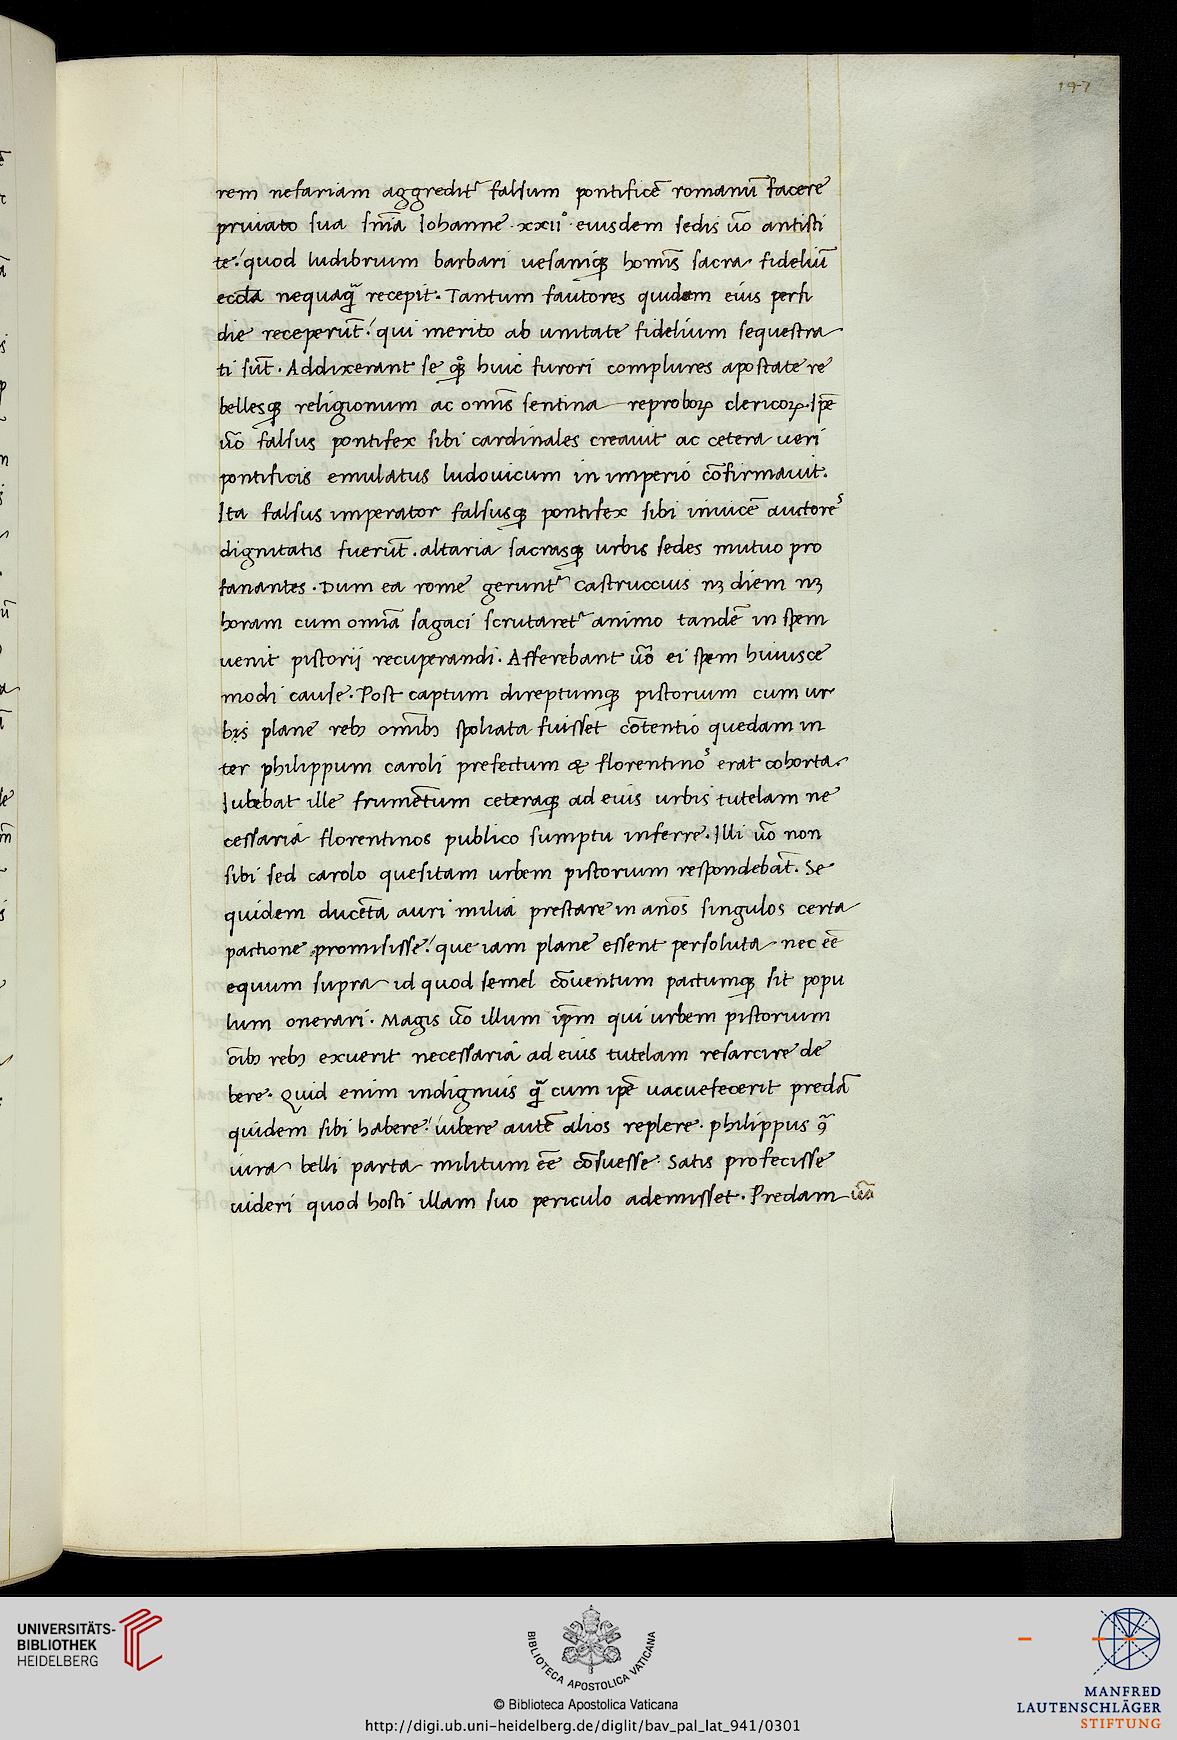 147
rem nefariam aggredit᷑ falsum pontificē romanū facere
priuato sua sn̄ia Iohanne · xxii° · eiusdem sedis ūo antisti
te: quod ludibrium barbari uesaniqꝫ homīs sacra fideliū
eccl̄a nequaꝗ̄ recepit. Tantum fautores quidem eius perfi
die receperūt: qui merito ab unitate fidelium sequestra
ti sūt. Addixerant se qͦꝫ huic furori complures apostate re
bellesqꝫ religionum ac omīs sentina reproboꝝ clericoꝝ. Ip̄e
ūo falsus pontifex sibi cardinales creauit ac cetera ueri
pontificis emulatus ludouicum in imperio cōfirmauit.
Ita falsus imperator falsusqꝫ pontifex sibi inuicē auctores
dignitatis fuerūt. altaria sacrasqꝫ urbis sedes mutuo pro
fanantes. Dum ea rome gerunt᷑ castruccius nꝫ diem nꝫ
horam cum omīa sagaci scrutaret᷑ animo tandē in spem
uenit pistorij recuperandi. Afferebant ūo ei spem huiusce
modi cause. Post captum direptumqꝫ pistorium cum ur
bis plane rebꝫ omībꝫ spoliata fuisset cōtentio quedam in
ter philippum caroli prefectum & florentinos erat cohorta.
Iubebat ille frumētum ceteraqꝫ ad eius urbis tutelam ne
cessaria florentinos publico sumptu inferre. Illi ūo non
sibi sed carolo quesitam urbem pistorium respondebāt. Se
quidem ducēta auri milia prestare in an̄os singulos certa
pactione promisisse: que iam plane essent persoluta nec ēe
equum supra id quod semel cōuentum pactumqꝫ sit popu
lum onerari. Magis ūo illum ip̄m qui urbem pistorium
oībꝫ rebꝫ exuerit necessaria ad eius tutelam resarcire de
bere. Quid enim indignius ꝗ̄ cum ip̄e uacuefecerit predā
quidem sibi habere: iubere autē alios replere. philippus ꝯᷓ
iura belli parta militum ēe cōsuesse. Satis profecisse
uideri quod hosti illam suo periculo ademisset. Predam ūo
UNIVERSITÄTS-
BIBLIOTHEK
HEIDELBERG
BIBLIOTECA APOSTOLICA VATICANA
© Biblioteca Apostolica Vaticana
http://digi.ub.uni-heidelberg.de/diglit/bav_pal_lat_941/0301
MANFRED
LAUTENSCHLÄGER
STIFTUNG